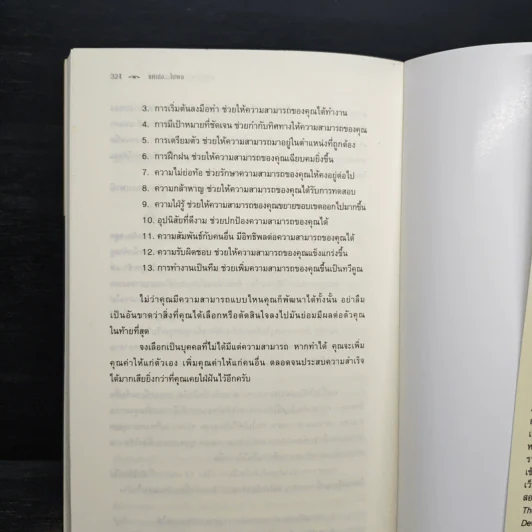 324
3. การเริ่มต้นลงมือทำ ช่วยให้ความสามารถของคุณได้ทำงาน
4. การมีเป้าหมายที่ชัดเจน ช่วยกำกับทิศทางให้ความสามารถของคุณ
5. การเตรียมตัว ช่วยให้ความสามารถมาอยู่ในตำแหน่งที่ถูกต้อง
6. การฝึกฝน ช่วยให้ความสามารถของคุณเฉียบคมยิ่งขึ้น
7. ความไม่ย่อท้อ ช่วยรักษาความสามารถของคุณให้คงอยู่ต่อไป
8. ความกล้าหาญ ช่วยให้ความสามารถของคุณได้รับการทดสอบ
9. ความใฝ่รู้ ช่วยให้ความสามารถของคุณขยายขอบเขตออกไปมากขึ้น
10. อุปนิสัยที่ดีงาม ช่วยปกป้องความสามารถของคุณได้
11. ความสัมพันธ์กับคนอื่น มีอิทธิพลต่อความสามารถของคุณได้
12. ความรับผิดชอบ ช่วยให้ความสามารถของคุณแข็งแกร่งขึ้น
13. การทำงานเป็นทีม ช่วยเพิ่มความสามารถของคุณขึ้นเป็นทวีคูณ
ไม่ว่าคุณมีความสามารถแบบไหนคุณก็พัฒนาได้ทั้งนั้น อย่าลืม
เป็นอันขาดว่าสิ่งที่คุณได้เลือกหรือตัดสินใจลงไปมันย่อมมีผลต่อตัวคุณ
ในท้ายที่สุด
จงเลือกเป็นบุคคลที่ไม่ได้มีแต่ความสามารถ หากทำได้ คุณจะเพิ่ม
คุณค่าให้แก่ตัวเอง เพิ่มคุณค่าให้แก่คนอื่น ตลอดจนประสบความสำเร็จ
ได้มากเสียยิ่งกว่าที่คุณเคยใฝ่ฝันไว้อีกครับ
Th
De